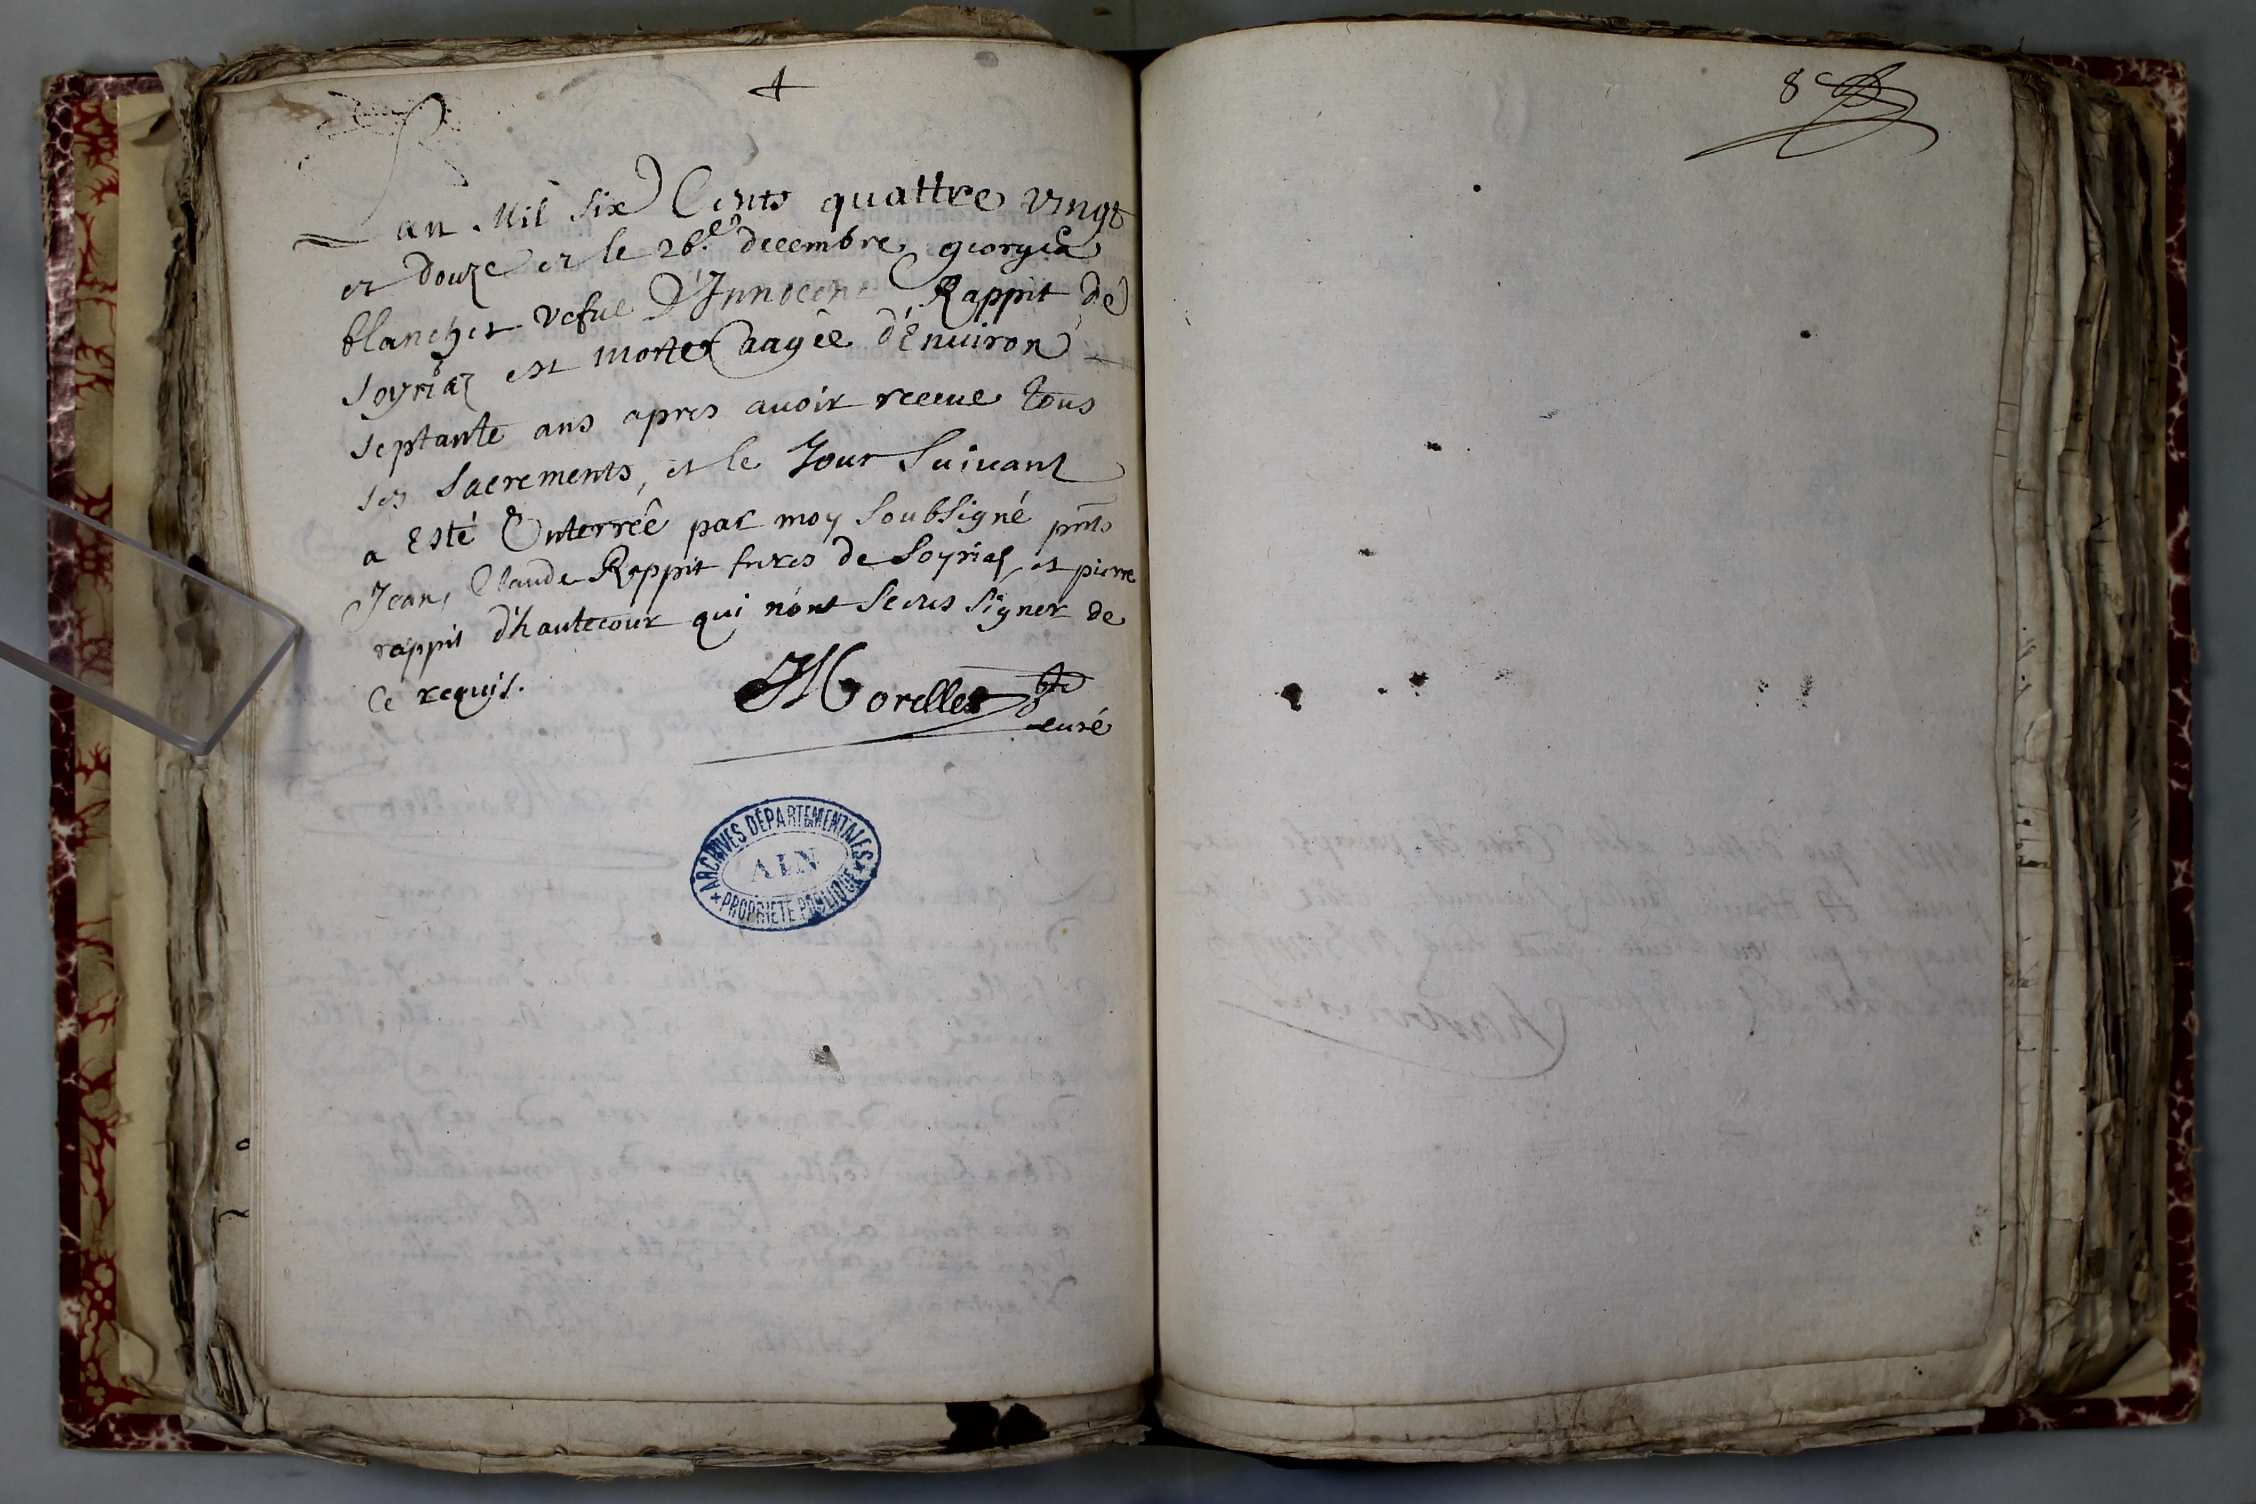 Lan Mil Six Cents quattre vingt
et douze et le 26.e decembre georgea
blanchet vefue D'Innocent Rappit de
soyriaz est morte aagée d'Enuiron
septante ans apres auoir receue tous
ses sacrements, et le Jour Suiuant
a Esté Enterréé par moy Soubsigné pnts
Jean, Claude Rappit freres de Soyriaz, et pierre
rappit d'hautecour qui n'ont sceus signer de
Ce requis.
JMorellet pbre
curé
ARCHIVES DÉPARTEMENTALES
AIN
PROPRIÉTÉ PUBLIQUE
8